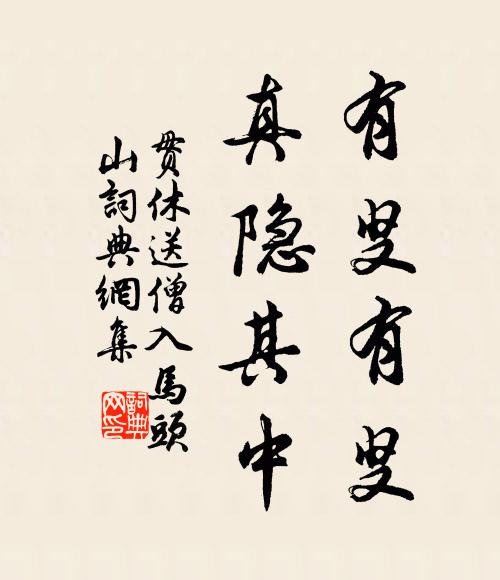 有叟有叟
真隐其中
貫休送僧入馬頭
山詞典網集
詞典
网印